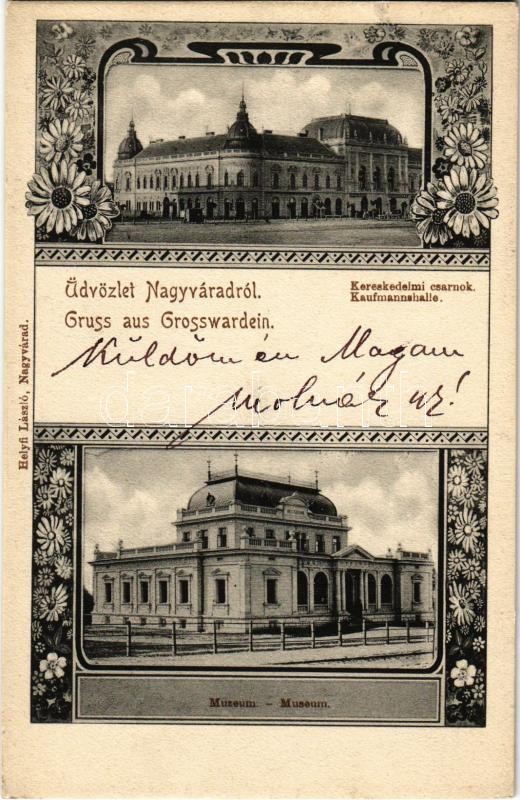 Üdvözlet Nagyváradról.
Gruss aus Grosswardein.
Kereskedelmi csarnok.
Kaufmannshalle.
Küldöm én Magam
Molnár
Helyfi László, Nagyvárad.
Muzeum. - Museum.